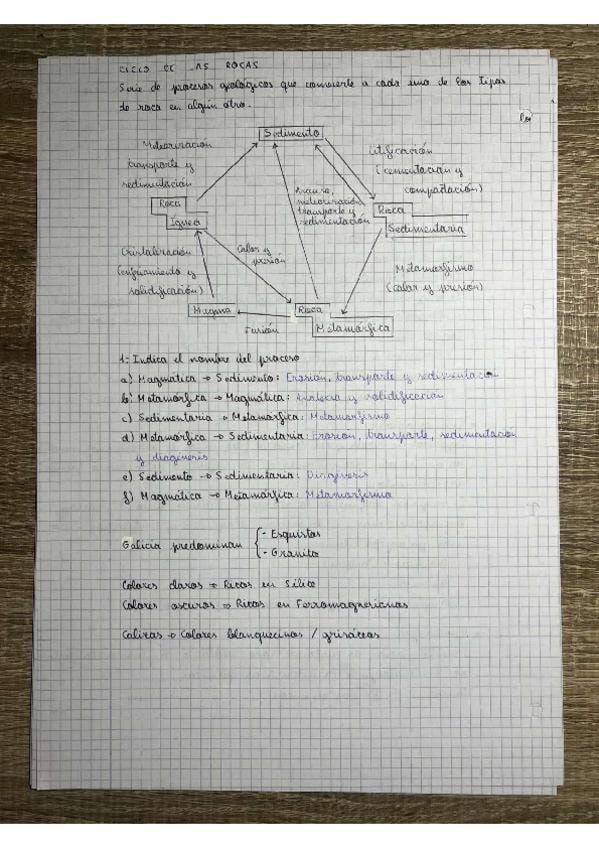 CICLO DE LAS ROCAS
Serie de procesos geológicos que convierte a cada uno de los tipos
de roca en algún otro.
Sedimento
Meteorización
transporte y
sedimentación
Litificación
(cementación y
compactación)
meteorización
transporte y
sedimentación
Roca
Ígnea
Roca
Sedimentaria
Cristalización
(enfriamiento y
solidificación)
Calor y
presión
Metamorfismo
(calor y presión)
Magma
Fusión
Roca
Metamórfica
1- Indica el nombre del proceso
a) Magmática → Sedimento: Erosión, transporte y sedimentación
b) Metamórfica → Magmática: y solidificación
c) Sedimentaria → Metamórfica: Metamorfismo
d) Metamórfica → Sedimentaria: Erosión, transporte, sedimentación
y diagénesis
e) Sedimento → Sedimentaria: Diagénesis
f) Magmática → Metamórfica: Metamorfismo
Galicia predominan
- Esquistos
- Granito
Colores claros → Ricos en Sílice
Colores oscuros → Ricos en Ferromagnesianos
Calizas → Colores blanquecinos / grisáceos